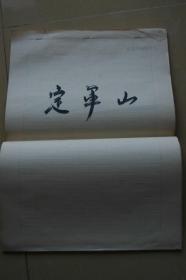 定军山